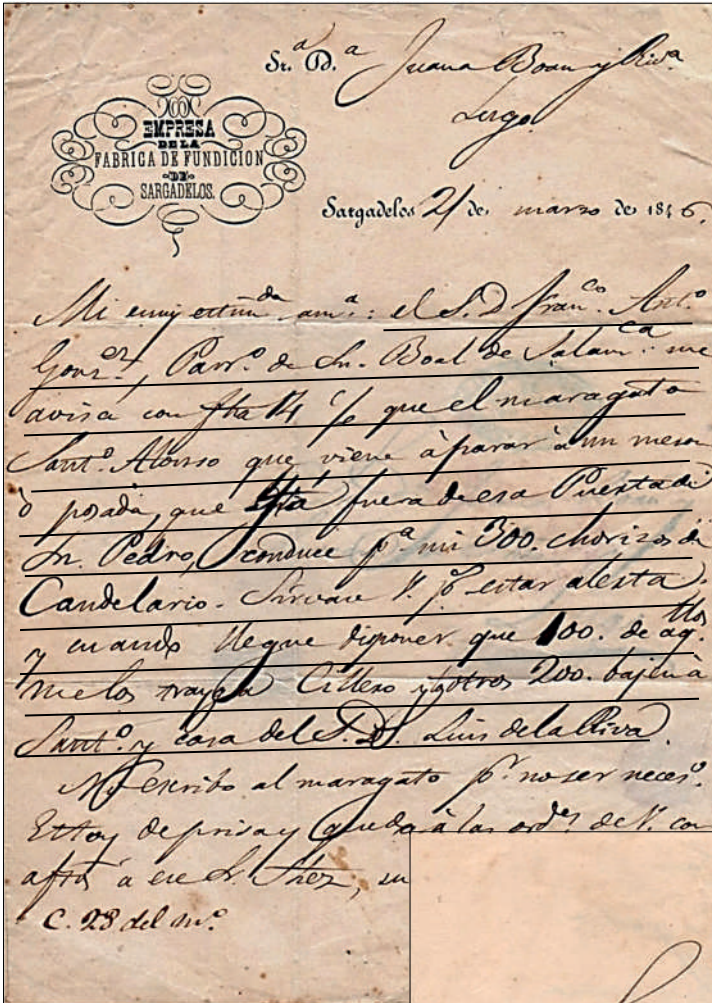 Sr.ª D.ª Juana Boan y Riv.ª
Lugo
EMPRESA
DE LA
FABRICA DE FUNDICION
DE
SARGADELOS.
Sargadelos 21 de marzo de 1846.
Mi muy estim.da am.ª: el S. D. Fran.co Ant.º
Gonz.ez, Parr.º de Sn. Boal de Salam.ca me
avisa con fha 14 que el maragato
Sant.º Alonso que viene à parar à un meson
ò posada, que está fuera de esa Puerta de
Sn. Pedro, conduce p.ª mi 300. chorizos de
Candelario. Sirvase V. p.r estar alerta,
y cuando llegue disponer que 100. de aq.llos
me los trayga Cillero y otros 200. bajen à
Sant.º y casa del S. D. Luis de la Riva.
No escribo al maragato p.r no ser neces.º
Estoy de prisa y queda à las ord.es de V. con
afto à ese Sr. su
C. 23 del m.º